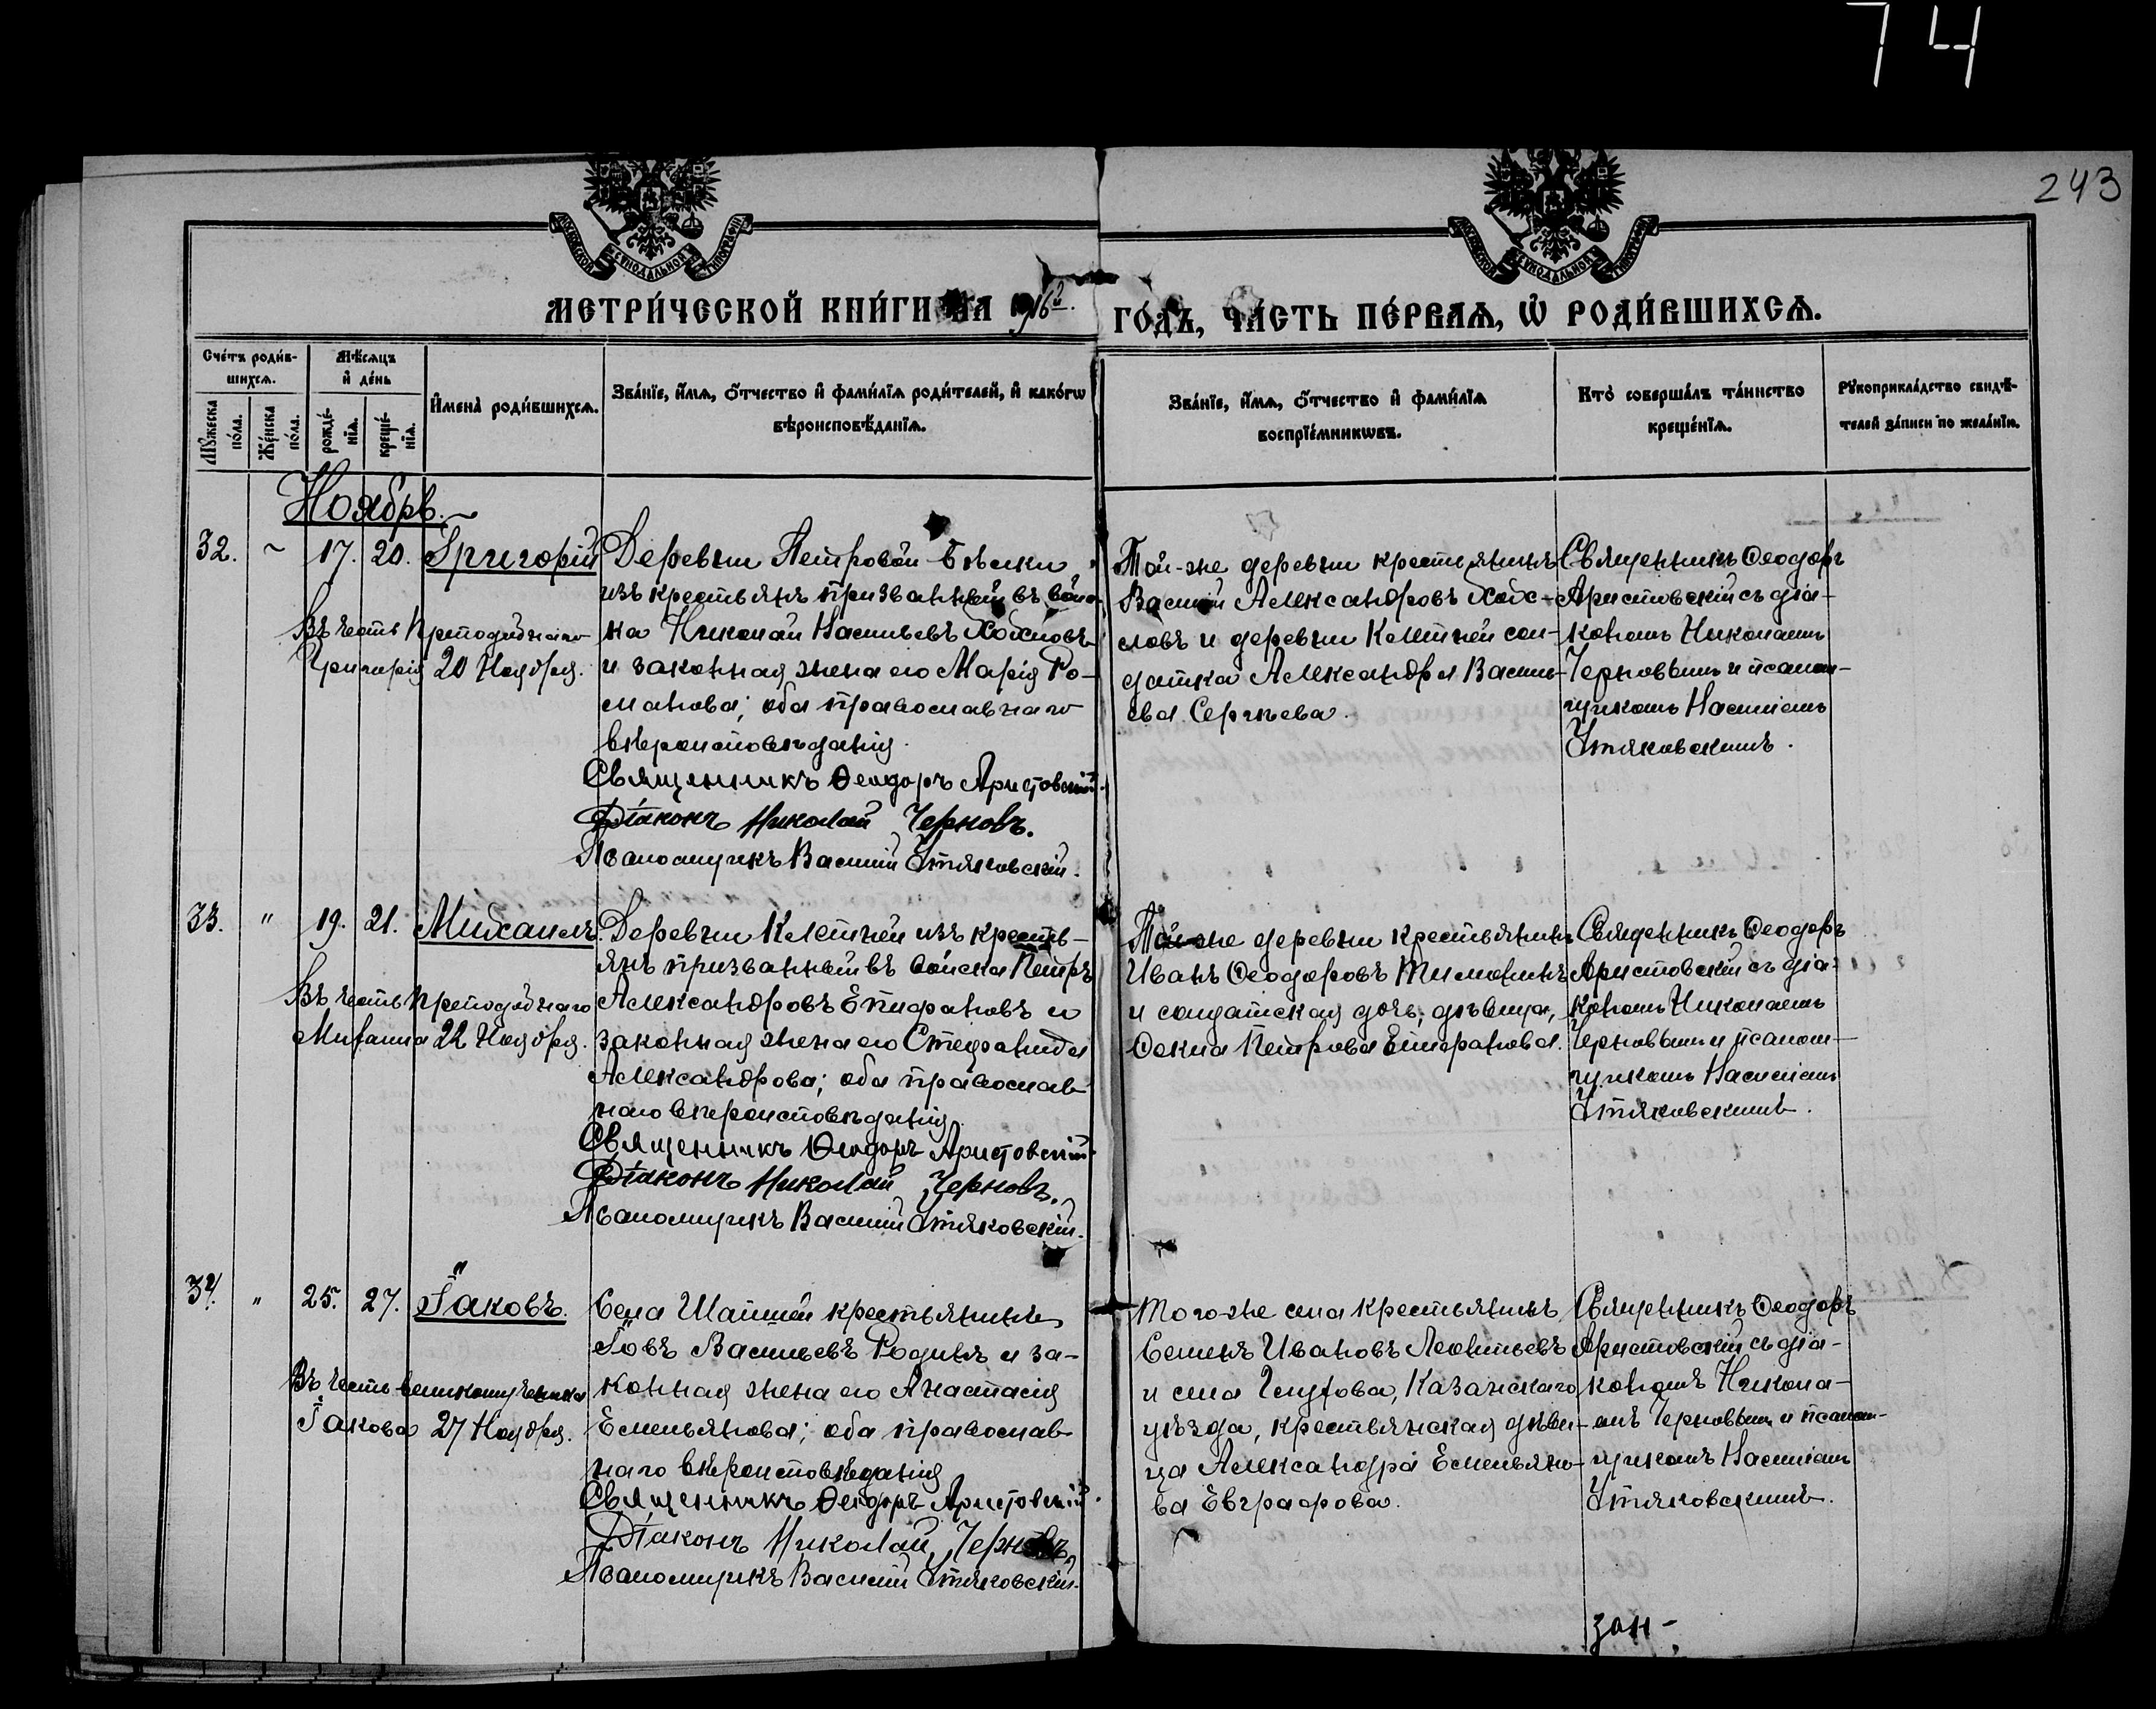 74
243
МЕТРИ́ЧЕСКОЙ КНИ́ГИ НА 1916й. ГО́ДЪ, ЧА́СТЬ ПЕ́РВАѦ, Ѡ҆ РОДИ́ВШИХСѦ.
Сче́тъ роди́в-
шихсѧ.
Мѣ́сѧцъ
и҆ де́нь
Мꙋ́жеска
по́ла.
Же́нска
по́ла.
рожде́-
нїѧ.
креще́-
нїѧ.
И҆мена̀ роди́вшихсѧ.
Зва́нїе, и҆́мѧ, ѻ҆́тчество и҆ фамѝлїѧ роди́телей, и҆ како́гѡ
вѣроисповѣ́данїѧ.
Зва́нїе, и҆́мѧ, ѻ҆́тчество и҆ фамѝлїѧ
воспрїе́мникѡвъ.
Кто̀ соверша́лъ та́инство
креще́нїѧ.
Рꙋкоприкла́дство свидѣ́-
телей за́писи по жела́нїю.
Ноябрь.
32. ~ 17. 20. Григорій
Въ честь Преподобнаго
Григорія 20 Ноября.
Деревни Петровой
изъ крестьянъ призванный въ войс-
ка Николай Васильевъ
и законная жена его Марія Ро-
манова; оба православнаго
вѣроисповѣданія.
Священникъ Ѳеодоръ Аристовскій.
Діаконъ Николай Черновъ.
Псаломщикъ Василій Утяковскій.
Той-же деревни крестьянинъ
Василій Александровъ
и деревни Клетней сол-
датка Александра Василь-
ева Сергѣева.
Священникъ Ѳеодоръ
Аристовскій съ діа-
кономъ Николаемъ
Черновымъ и псалом-
щикомъ Василіемъ
Утяковскимъ.
33. " 19. 21. Михаилъ.
Въ честь Преподобнаго
Михаила 22 Ноября.
Деревни Клетней изъ кресть-
янъ призванный въ войска Петръ
Александровъ Епифановъ и
законная жена его Стефанида
Александрова; оба православ-
наго вѣроисповѣданія.
Священникъ Ѳеодоръ Аристовскій.
Діаконъ Николай Черновъ.
Псаломщикъ Василій Утяковскій.
Той-же деревни крестьянинъ
Иванъ Ѳеодоровъ Тимофинъ
и солдатская дочь, дѣвица,
Ѳекла Петрова Епифанова.
Священникъ Ѳеодоръ
Аристовскій съ діа-
кономъ Николаемъ
Черновымъ и псалом-
щикомъ Василіемъ
Утяковскимъ.
34. " 25. 27. Іаковъ.
Въ честь великомученика
Іакова 27 Ноября.
Села Шапшей крестьянинъ
Іовъ Васильевъ Родинъ и за-
конная жена его Анастасія
Емельянова; оба православ-
наго вѣроисповѣданія
Священникъ Ѳеодоръ Аристовскій.
Діаконъ Николай Черновъ.
Псаломщикъ Василій Утяковскій.
Того-же села крестьянинъ
Семенъ Ивановъ Леонтьевъ
и села Казанскаго
уѣзда, крестьянская дѣви-
ца Александра Емельяно-
ва Евграфова.
Священникъ Ѳеодоръ
Аристовскій съ діа-
кономъ Никола-
емъ Черновымъ и псалом-
щикомъ Василіемъ
Утяковскимъ.
зан-